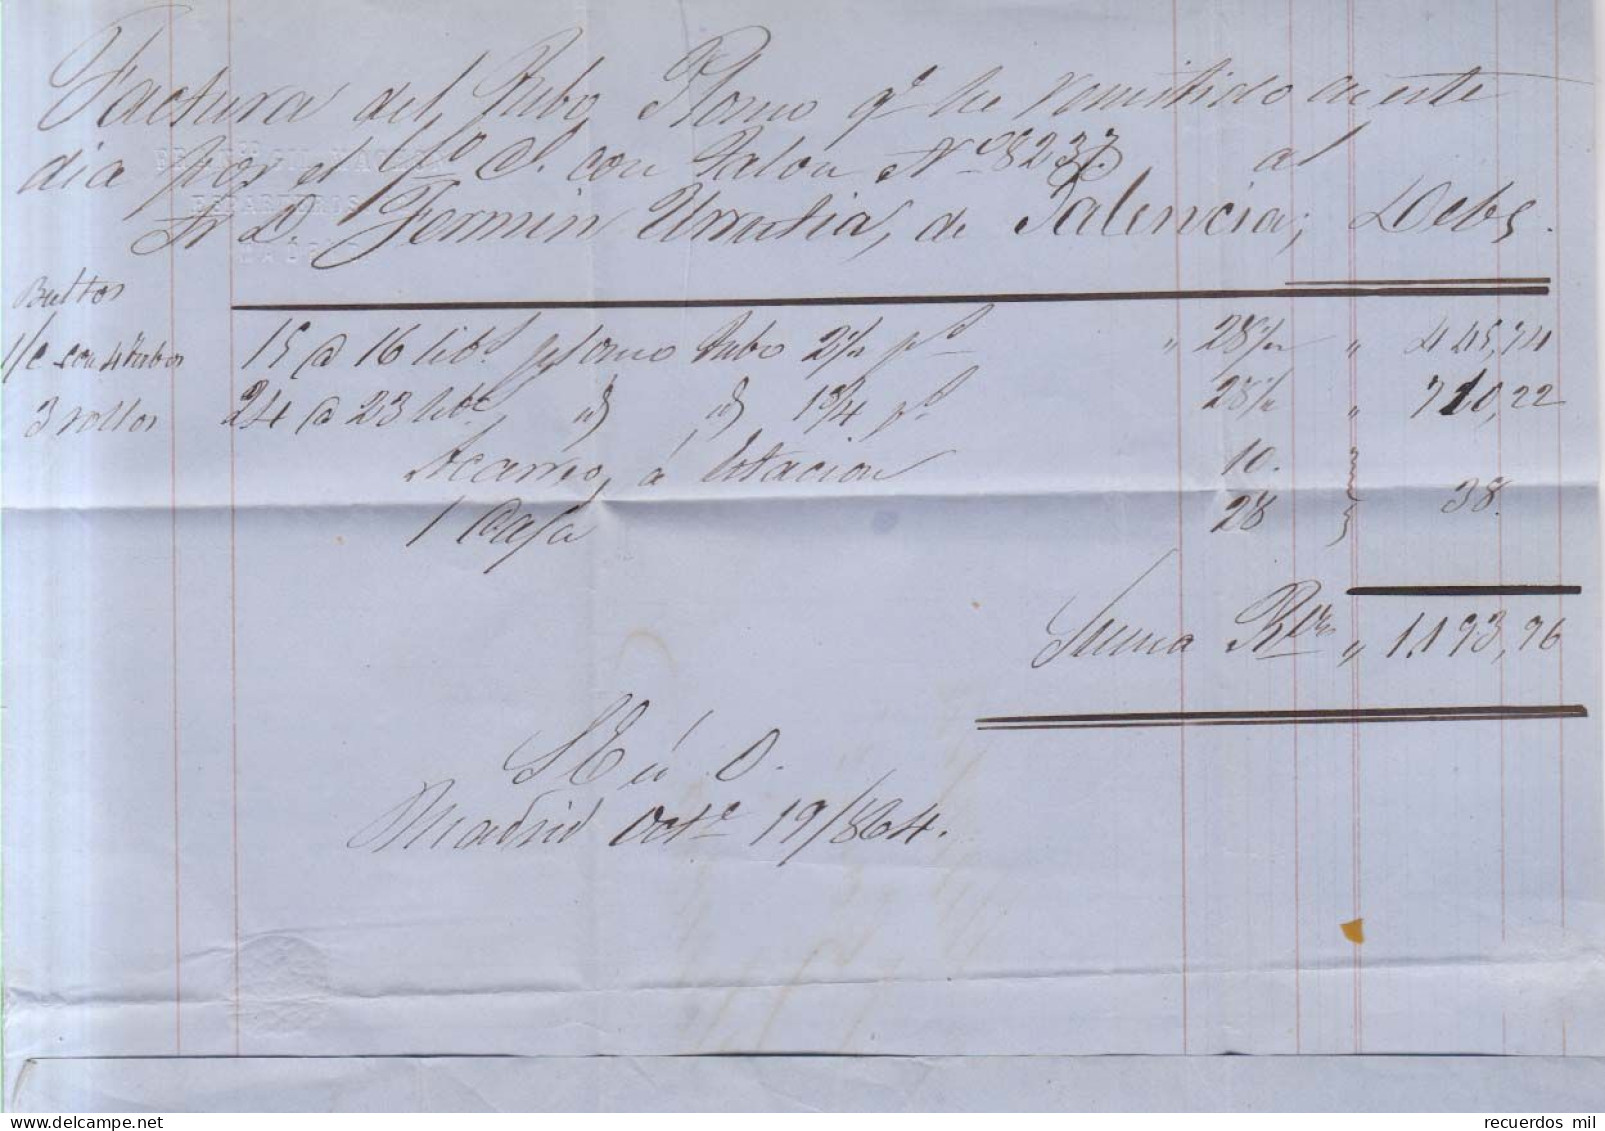 Factura del Tubo Plomo qe he remitido en este
dia por el Co S. con Talon No 8237. al
Sr D. Fermin Urrutia, de Palencia; Debe.
Bultos
1/c con 4 tubos 15 @ 16 libs plomo tubo 2 1/2 pd " 28 1/2 " 445,74
3 rollos 24 @ 23 libs id id 1 3/4 pd 28 1/2 " 710,22
Acarreo á Estacion 10.
1 Caja 28 38.
Suma Rvn " 1.193,96
S E ú O.
Madrid Octe 19/864.
recuerdos mil